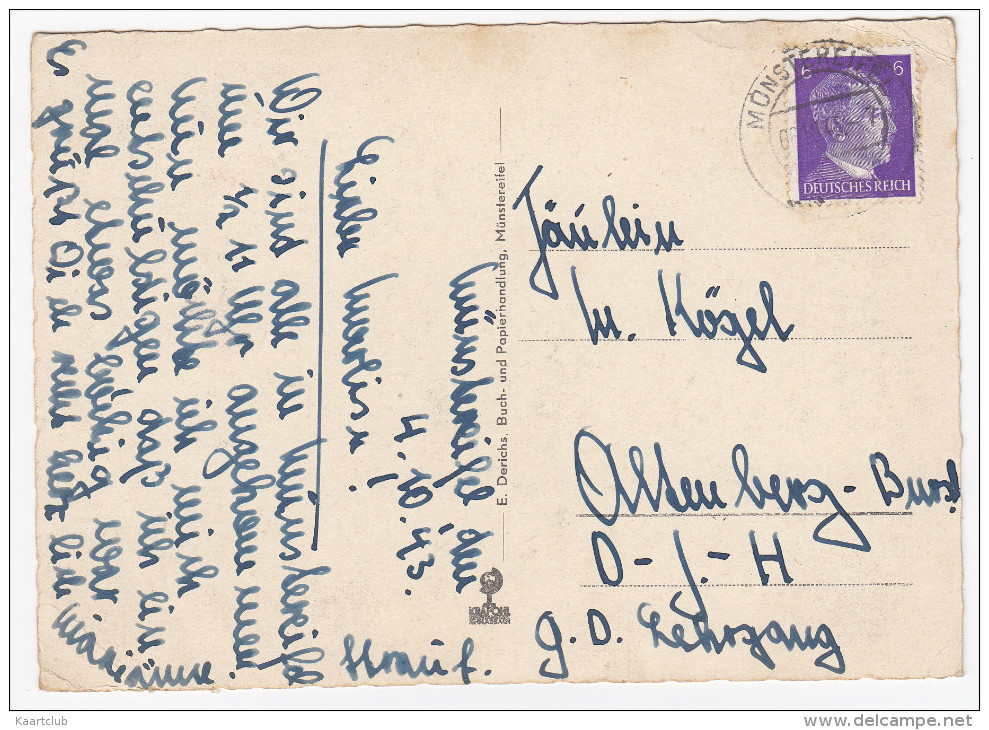 Münstereifel den
4.10.43.
Liebe Marlise!
Wir sind alle in Münstereifel
um ½ 11 Uhr angekommen
Nun möchte ich mich
entschuldigen daß ich ein
mal etwas
Es grüßt Dich recht herzlich
Marianne
Strauf.
E. Derichs, Buch- und Papierhandlung, Münstereifel
KRAPOHL
MÜNSTEREIFEL
6 6
DEUTSCHES REICH
Fräulein
M. Kögel
Altenberg-Burscheid
D-J-H
G.D. Lehrgang
Kaartclub
www.delcampe.net